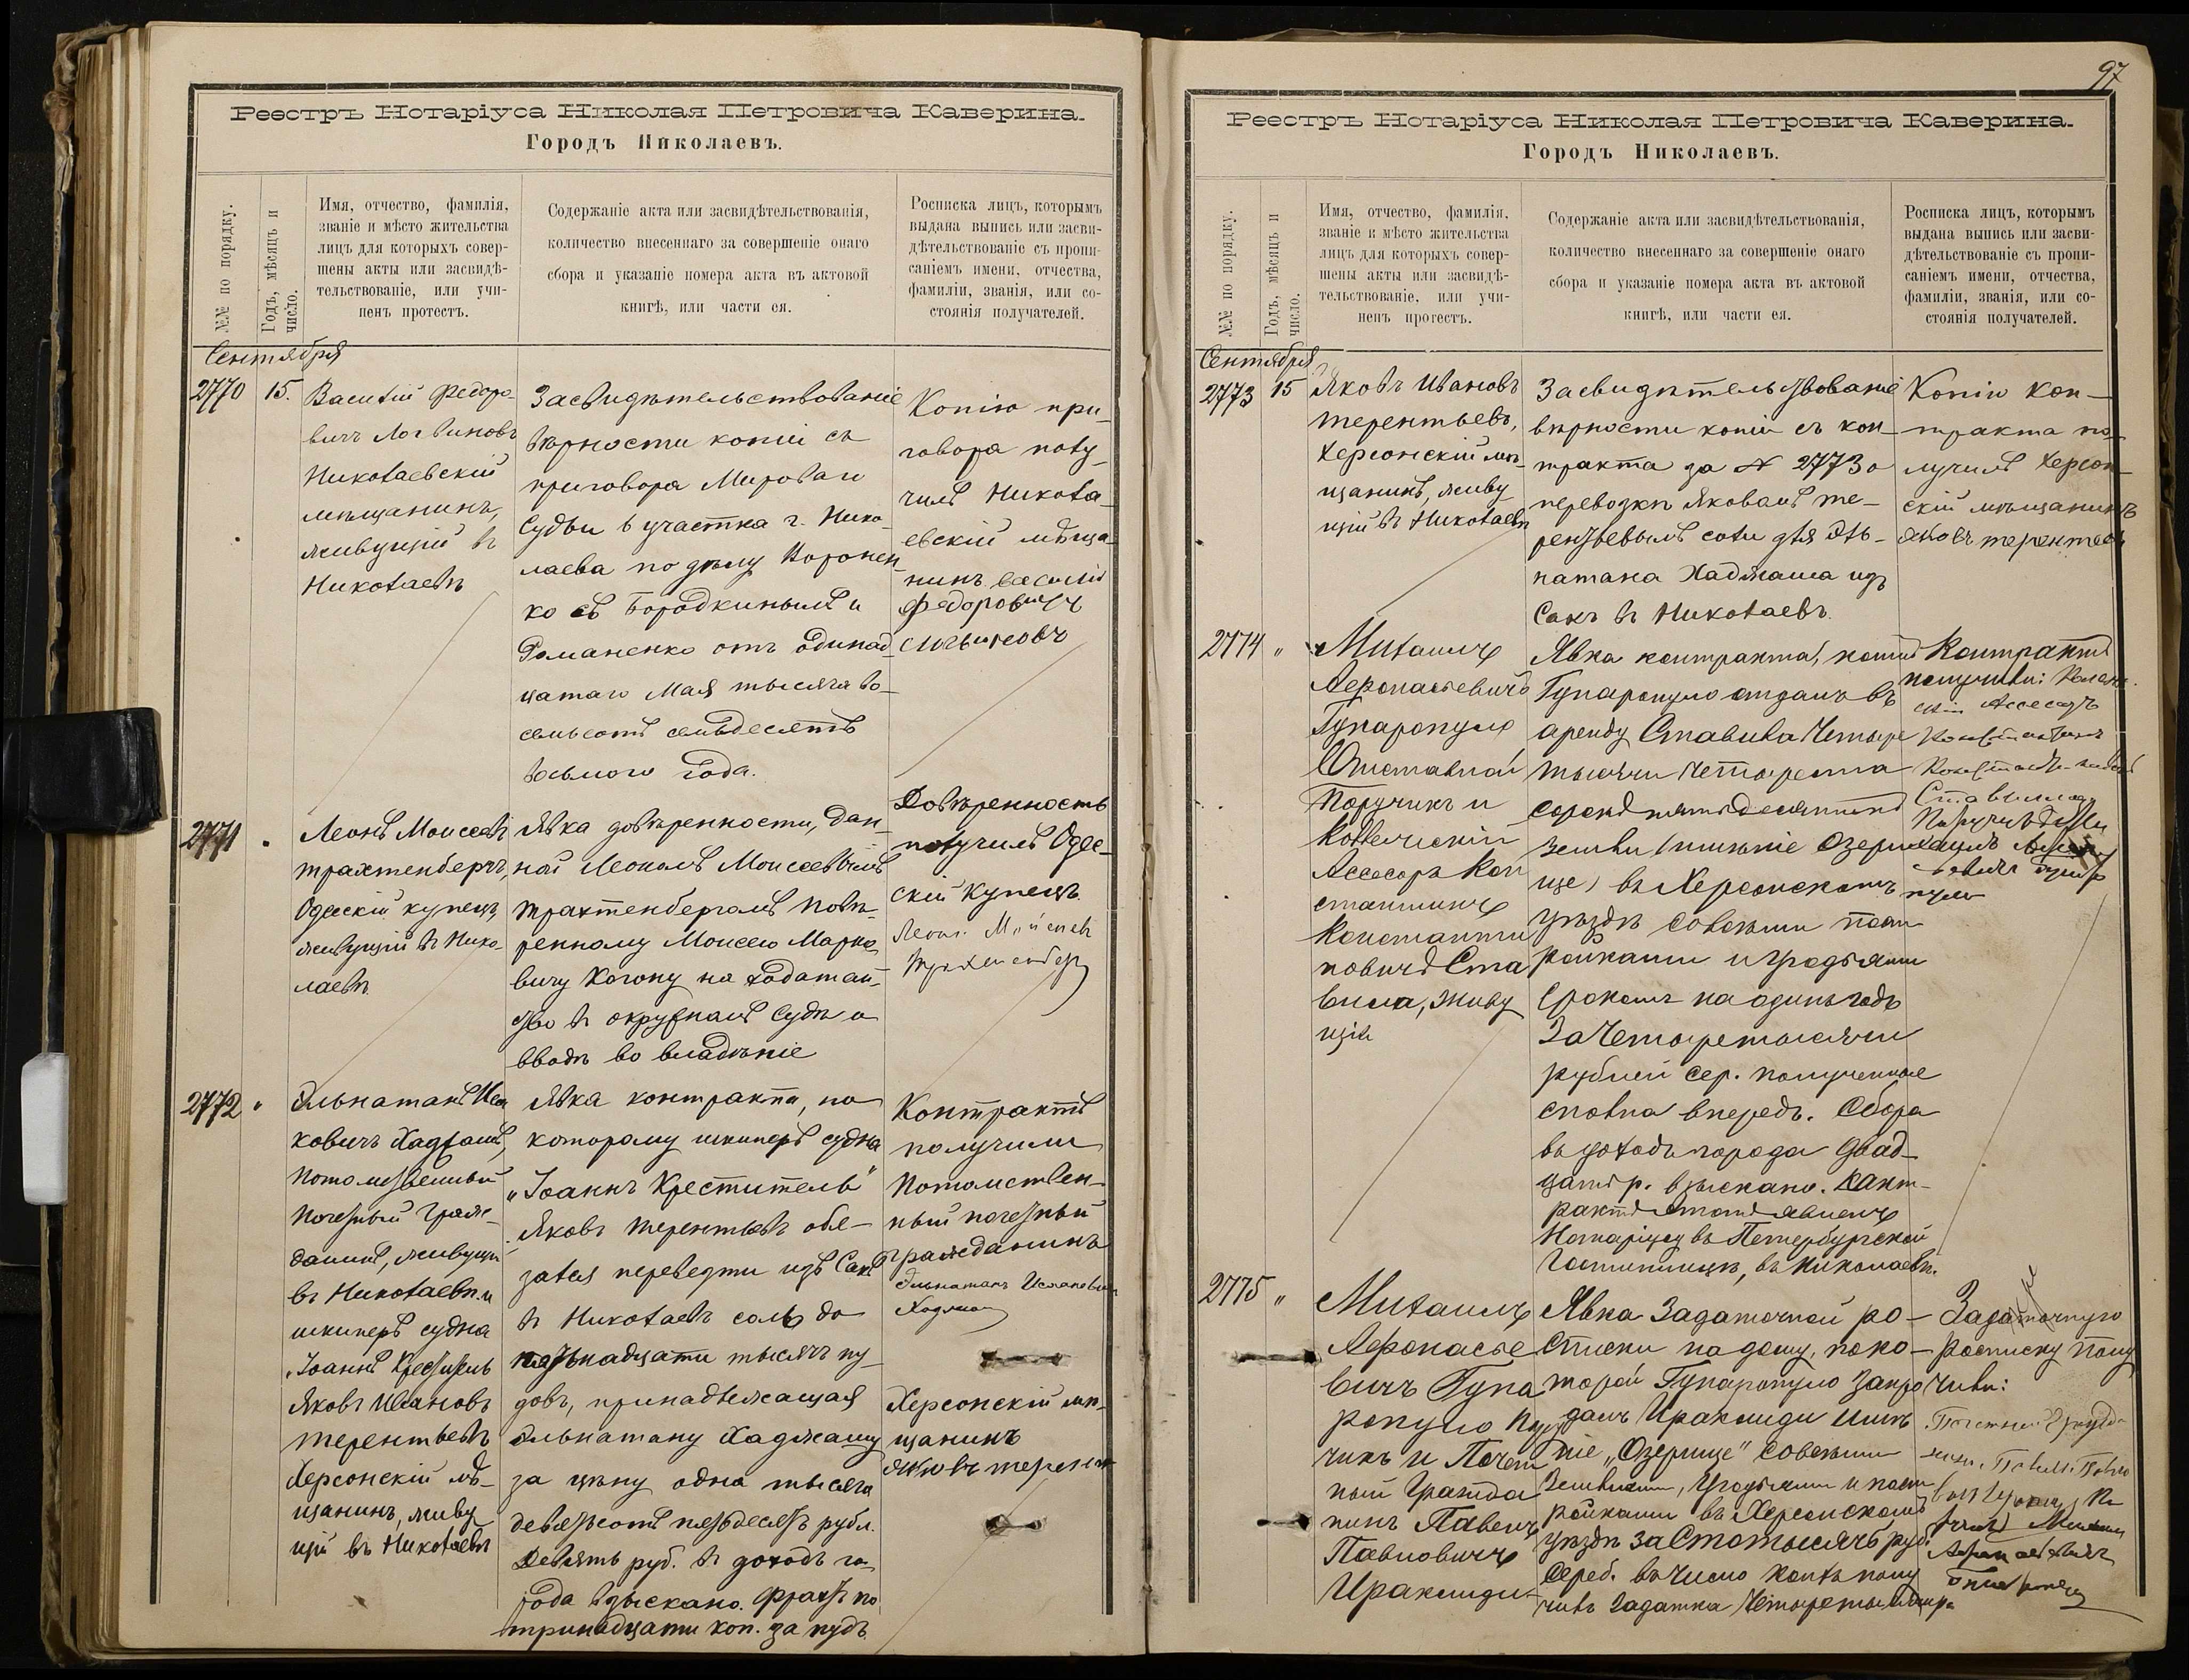 Реестръ Нотаріуса Николая Петровича Каверина.
Городъ Николаевъ.
№№ по порядку.
Годъ, мѣсяцъ и
число.
Имя, отчество, фамилія,
званіе и мѣсто жительства
лицъ для которыхъ совер-
шены акты или засвидѣ-
тельствованіе, или учи-
ненъ протестъ.
Содержаніе акта или засвидѣтельствованія,
количество внесеннаго за совершеніе онаго
сбора и указаніе номера акта въ актовой
книгѣ, или части ея.
Росписка лицъ, которымъ
выдана выпись или засви-
дѣтельствованіе съ пропи-
саніемъ имени, отчества,
фамиліи, званія, или со-
стоянія получателей.
Сентября
2770
15.
Василій Федоро
вичъ Логвиновъ
Николаевскій
мѣщанинъ,
живущій въ
Николаевѣ
Засвидѣтельствованіе
вѣрности копіи съ
приговора Мироваго
Судьи 6 участка г. Нико-
лаева по дѣлу Воронен-
ко съ Бородкинымъ и
Романенко отъ одинад-
цатаго Мая тысяча во-
семьсотъ семьдесятъ
восьмого года.
Копію при-
говора полу-
чилъ Никола-
евскій мѣща-
нинъ Василій
Федоровичъ
Логвиновъ
2771
Леонъ Моисеевъ
Трахтенбергъ,
Одесскій купецъ,
живущій въ Нико-
лаевѣ
Явка довѣренности, дан-
ной Леономъ Моисеевымъ
Трахтенбергомъ повѣ-
ренному Моисею Марко-
вичу Когону на ходатай-
ство въ окружномъ Судѣ о
вводѣ во владѣніе
Довѣренность
получилъ Одес-
скій Купецъ
Леонъ Моисеевъ
Трахтенбергъ
2772
Эльнатанъ Иса
ковичъ Хаджашъ,
потомственный
почетный граж-
данинъ, живущій
въ Николаевѣ и
шкиперъ судна
„Іоаннъ Креститель
Яковъ Ивановъ
Терентьевъ
Херсонскій мѣ-
щанинъ, живу
щій въ Николаевѣ
Явка контракта, по
которому шкиперъ судна
„Іоаннъ Креститель"
Яковъ Терентьевъ обя-
зался перевезти изъ Сакъ
въ Николаевъ соль до
пятьнадцати тысячъ пу-
довъ, принадлежащая
Эльнатану Хаджашу
за цѣну одна тысяча
девятьсотъ пятьдесятъ рубл.
Девять руб. въ доходъ го-
рода взыскано. Фрахтъ по
тринадцати коп. за пудъ
Контрактъ
получили
Потомствен-
ный почетный
гражданинъ
Эльнатанъ Исаковичъ
Хаджаш
Херсонскій мѣ-
щанинъ
Яковъ терентев
97
Реестръ Нотаріуса Николая Петровича Каверина.
Городъ Николаевъ.
№№ по порядку.
Годъ, мѣсяцъ и
число.
Имя, отчество, фамилія,
званіе и мѣсто жительства
лицъ для которыхъ совер-
шены акты или засвидѣ-
тельствованіе, или учи-
ненъ протестъ.
Содержаніе акта или засвидѣтельствованія,
количество внесеннаго за совершеніе онаго
сбора и указаніе номера акта въ актовой
книгѣ, или части ея.
Росписка лицъ, которымъ
выдана выпись или засви-
дѣтельствованіе съ пропи-
саніемъ имени, отчества,
фамиліи, званія, или со-
стоянія получателей.
Сентября
2773
15
Яковъ Ивановъ
Терентьевъ,
Херсонскій мѣ-
щанинъ, живу
щій въ Николаевѣ
Засвидѣтельствованіе
вѣрности копіи съ кон-
тракта за № 2773 о
перевозкѣ Яковомъ Те-
рентьевымъ соли для Эль-
натана Хаджаша изъ
Сакъ въ Николаевъ.
Копію кон-
тракта по-
лучилъ Херсон-
скій мѣщанинъ
Яковъ терентевъ
2774
Михаилъ
Афонасьевичъ
Гунаропуло
Отставной
Поручикъ и
Коллежскій
Ассесоръ Кон
стантинъ
Константи
новичъ Ста
вила, живу
щіе
Явка контракта, коимъ
Гунаропуло отдалъ въ
аренду Ставила Четыре
тысячи Четыреста
сорокъ пять десятинъ
земли (имѣніе Озери
ще) въ Херсонскомъ
уѣздѣ со всѣми пост
ройками и угодьями
срокомъ на одинъ годъ
За Четыре тысячи
рублей сер. полученные
сполна впередъ. Сбора
въ доходъ города двад-
цать р. взыскано. Конт-
рактъ этотъ явленъ
Нотаріусу въ Петербургской
Гостинницѣ, въ Николаевѣ.
Контрактъ
получили: Колеж-
скій Ассесоръ
Константинъ
Константиновичъ
Ставила
Поручикъ
2775
Михаилъ
Афонасье
вичъ Гуна
ропуло Пору
чикъ и Почет
ный Гражда
нинъ Павелъ
Павловичъ
Ираклиди
Явка Задаточной ро-
списки на дому, по ко-
торой Гунаропуло запро
далъ Ираклиди Имѣ
ніе „Озерище" со всѣми
Землями, Угодьями и пост
ройками въ Херсонскомъ
уѣздѣ за Сто тысячъ руб.
Сереб. въ число коихъ полу
чилъ Задатка Четыре тысячи р.
Задаточную
росписку полу
чили:
Почетный Гражда
нинъ Павелъ Павло